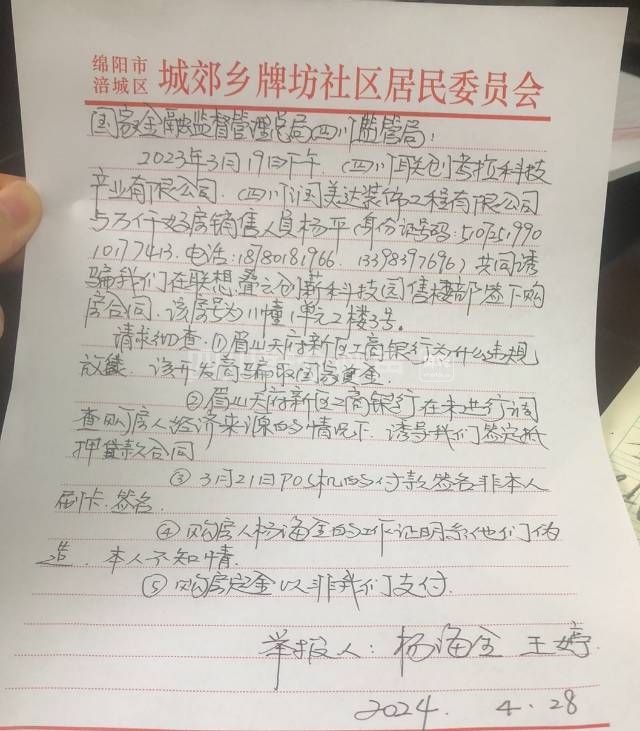 绵阳市
涪城区 城郊乡牌坊社区居民委员会
国家金融监督管理总局四川监管局:
2023年3月19日下午,(四川联创考拉科技
产业有限公司.(四川润美达装饰工程有限公司
与万仟好房销售人员杨平(身份证号码:5107251990
10177413.电话:18780181966. 13398397696)共同诱
骗我们在联想叠云创薪科技园售楼部签下购
房合同.该房号为11幢1单元2楼3号。
请求彻查.①眉山天府新区工商银行为什么违规
放款.该开发商骗取国家资金.
②眉山天府新区工商银行在未进行调
查购房人经济来源的情况下.诱导我们签定抵
押贷款合同
③3月21日POS机的付款签名非本人
刷卡.签名.
④购房人杨海金的工作证明系他们伪
造.本人不知情.
⑤购房定金以非我们支付.
举报人:杨海金 王婷.
2024. 4.28